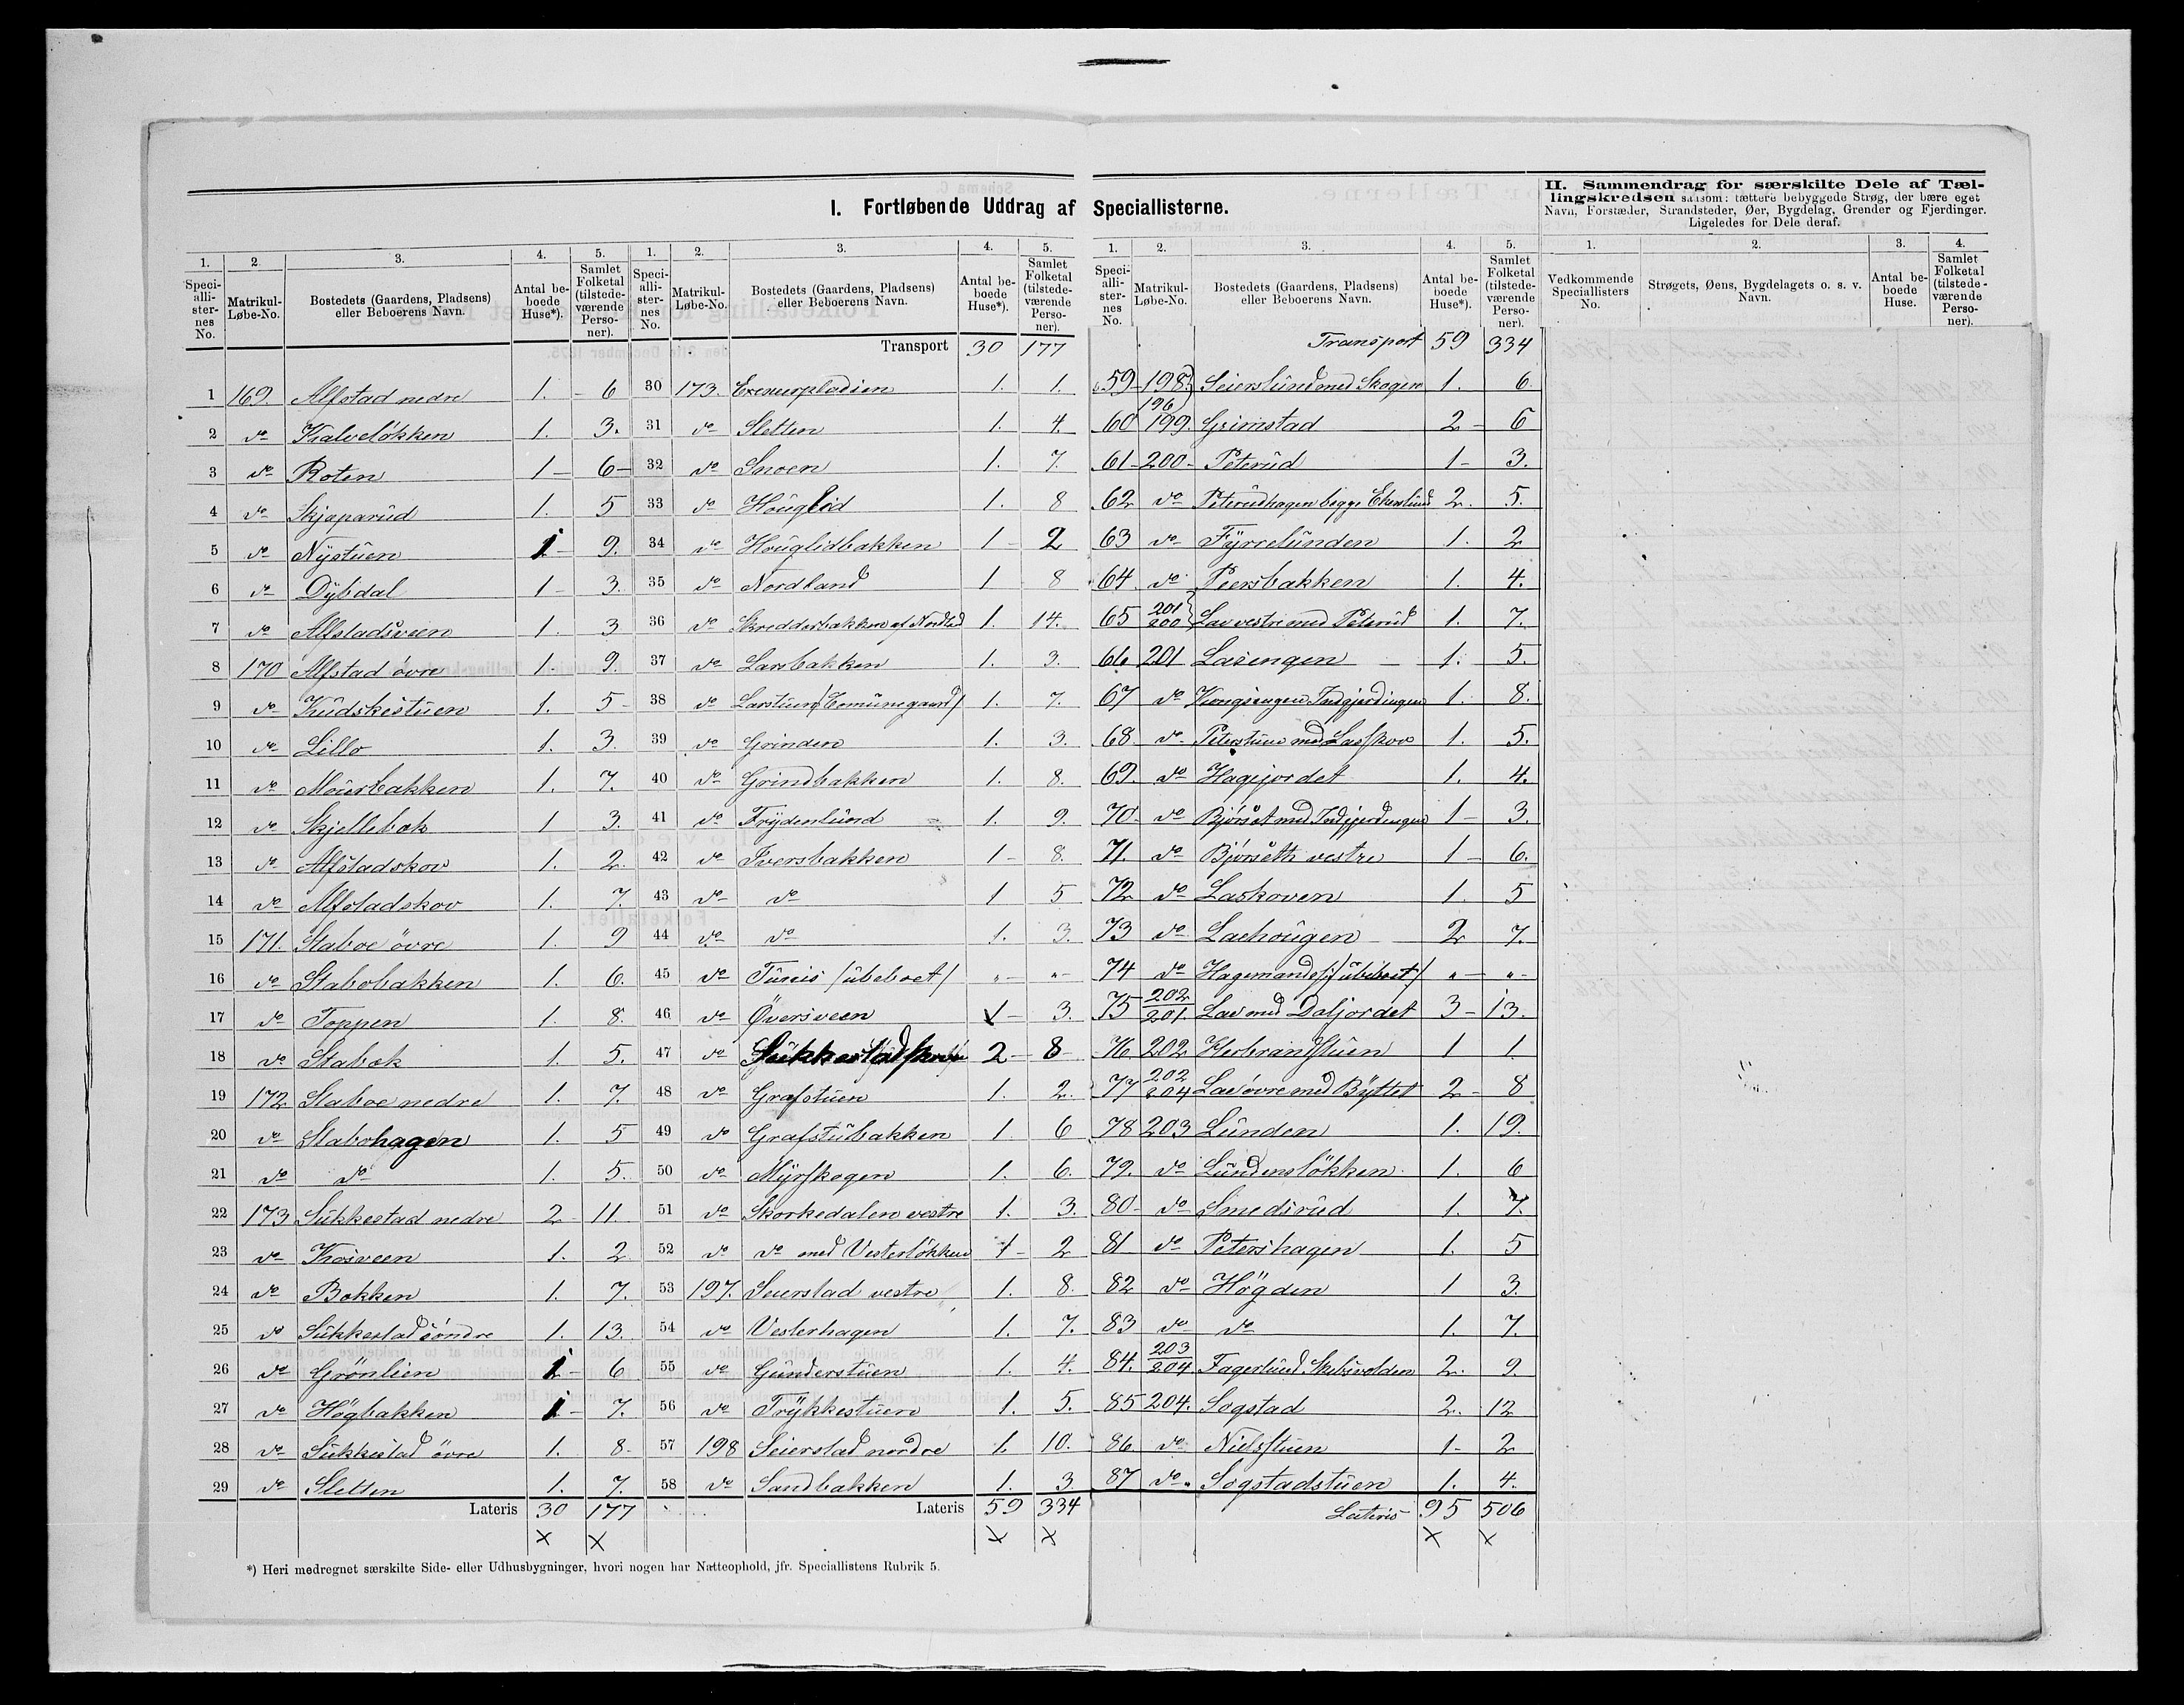 I. Fortløbende Uddrag af Speciallisterne.
II. Sammendrag for særskilte Dele af Tæl-
lingskredsen saasom: tættere bebyggede Strøg, der bære eget
Navn, Forstæder, Strandsteder, Øer, Bygdelag, Grender og Fjerdinger.
Ligeledes for Dele deraf.
1. 2. 3. 4. 5.
Speci-alli-ster-nes No. Matrikul-Løbe-No. Bostedets (Gaardens, Pladsens) eller Beboerens Navn. Antal be-boede Huse*). Samlet Folketal (tilstede-værende Perso-ner).
1 169. Alfstad nedre 1. 6
2 do Kalveløkken 1. 3.
3 do Roten 1 6
4 do Skjaparud 1. 5
5 do Nystuen 1 9.
6 do Dybdal 1 3.
7 do Alfstadsveen 1. 3
8 170 Alfstad øvre 1. 9.
9 do Kudskestuen 1. 5
10 do Lillo 1. 3.
11 do Mousbakken 1. 7.
12 do Skjellebæk 1 3.
13 do Alfstadskov 1. 2.
14 do Alfstadskov 1. 7.
15 171. Staboe øvre 1. 9
16 do Stabobakken 1. 6.
17 do Toppen 1. 8.
18 do Stabæk 1. 5.
19 172 Staboe nedre 1. 7.
20 do Stabohagen 1. 5
21 do do 1. 5.
22 173 Sukkestad nedre 2 11
23 do Krosveen 1. 2
24 do Bakken 1. 7.
25 do Sukkestad søndre 1. 13.
26 do Grønlien 1 6
27 do Høgbakken 1 7.
28 do Sukkestad øvre 1. 8
29 do Sletten 1. 7.
Lateris 30 177
1. 2. 3. 4. 5.
Speci-alli-ster-nes No. Matrikul-Løbe-No. Bostedets (Gaardens, Pladsens) eller Beboerens Navn. Antal be-boede Huse*). Samlet Folketal (tilstede-værende Perso-ner).
Transport 30 177
30 173. Exercerpladsen 1. 1.
31 do Sletten 1. 4.
32 do Snoen 1. 7.
33 do Houglid 1. 8
34 do Houglidbakken 1 2
35 do Nordland 1 8
36 do Skrædderbakken af Nordland 1. 14.
37 do Larsbakken 1. 3.
38 do Larstuen (Comunegaard) 1. 7.
39 do Grinden 1. 3.
40 do Grindbakken 1. 8.
41 do Frydenlund 1. 9.
42 do Iversbakken 1 8.
43 do do 1 5
44 do do 1. 3.
45 do (ubeboet) " "
46 do Øversveen 1 3.
47 do Sukkestadskoven 2 8
48 do Grafstuen 1. 2.
49 do Grafstubakken 1 6
50 do Myrskogen 1. 6.
51 do Skorkedalen vestre 1. 3.
52 do do med Vesterløkken 1 2
53 197. Seierstad vestre 1. 8.
54 do Vesterhagen 1. 7.
55 do Gunderstuen 1. 4.
56 do Trykkestuen 1. 5.
57 198 Seierstad nordre 1. 10.
58 do Sandbakken 1. 3
Lateris 59 334
1. 2. 3. 4. 5.
Speci-alli-ster-nes No. Matrikul-Løbe-No. Bostedets (Gaardens, Pladsens) eller Beboerens Navn. Antal be-boede Huse*). Samlet Folketal (tilstede-værende Perso-ner).
Transport 59 334
59 198. 196 Seierslund med Skogen 1. 6.
60 199 Grimstad 2 6
61 200 Peterud 1 3.
62 do Peterudhagen begge Ekenlund 2. 5.
63 do Fyrrelunden 1. 2
64 do Peersbakken 1. 4.
65 201 200 Lae vestre med Peterud 1. 7.
66 201 Laeengen 1. 5.
67 do Kongsengen Indgjerdingen 1. 8.
68 do Peterstuen med Laeskov 1. 5.
69. do Hagejordet 1. 4.
70 do Bjørset med Indgjerdingen 1 3.
71. do Bjørseth vestre 1 6.
72 do Laeskoven 1. 5
73 do Laehougen 2 7.
74 do (ubeboet) " "
75 202 201. Lae med Daljordet 3 13.
76 202 Herbrandstuen 1 1.
77 202 204 Lae øvre med Byttet 2 8
78 203 Lunden 1. 19.
79. do Lundensløkken 1. 6
80 do Smedsrud 1. 7.
81 do Petershagen 1. 5
82 do Høgden 1 3.
83 do do 1. 7.
84. 203 204 Fagerlund 2. 9.
85 204. Sogstad 2. 12
86 do Nielsstuen 1 2
87 do Sogstadstuen 1. 4.
Lateris 95 506
1. 2. 3. 4.
Vedkommende Speciallisters No. Strøgets, Øens, Bygdelagets o. s. v. Navn. Antal be-boede Huse. Samlet Folketal (tilstede-værende Perso-ner).
*) Heri medregnet særskilte Side- eller Udhusbygninger, hvori nogen har Natteophold, jfr. Speciallistens Rubrik 5.